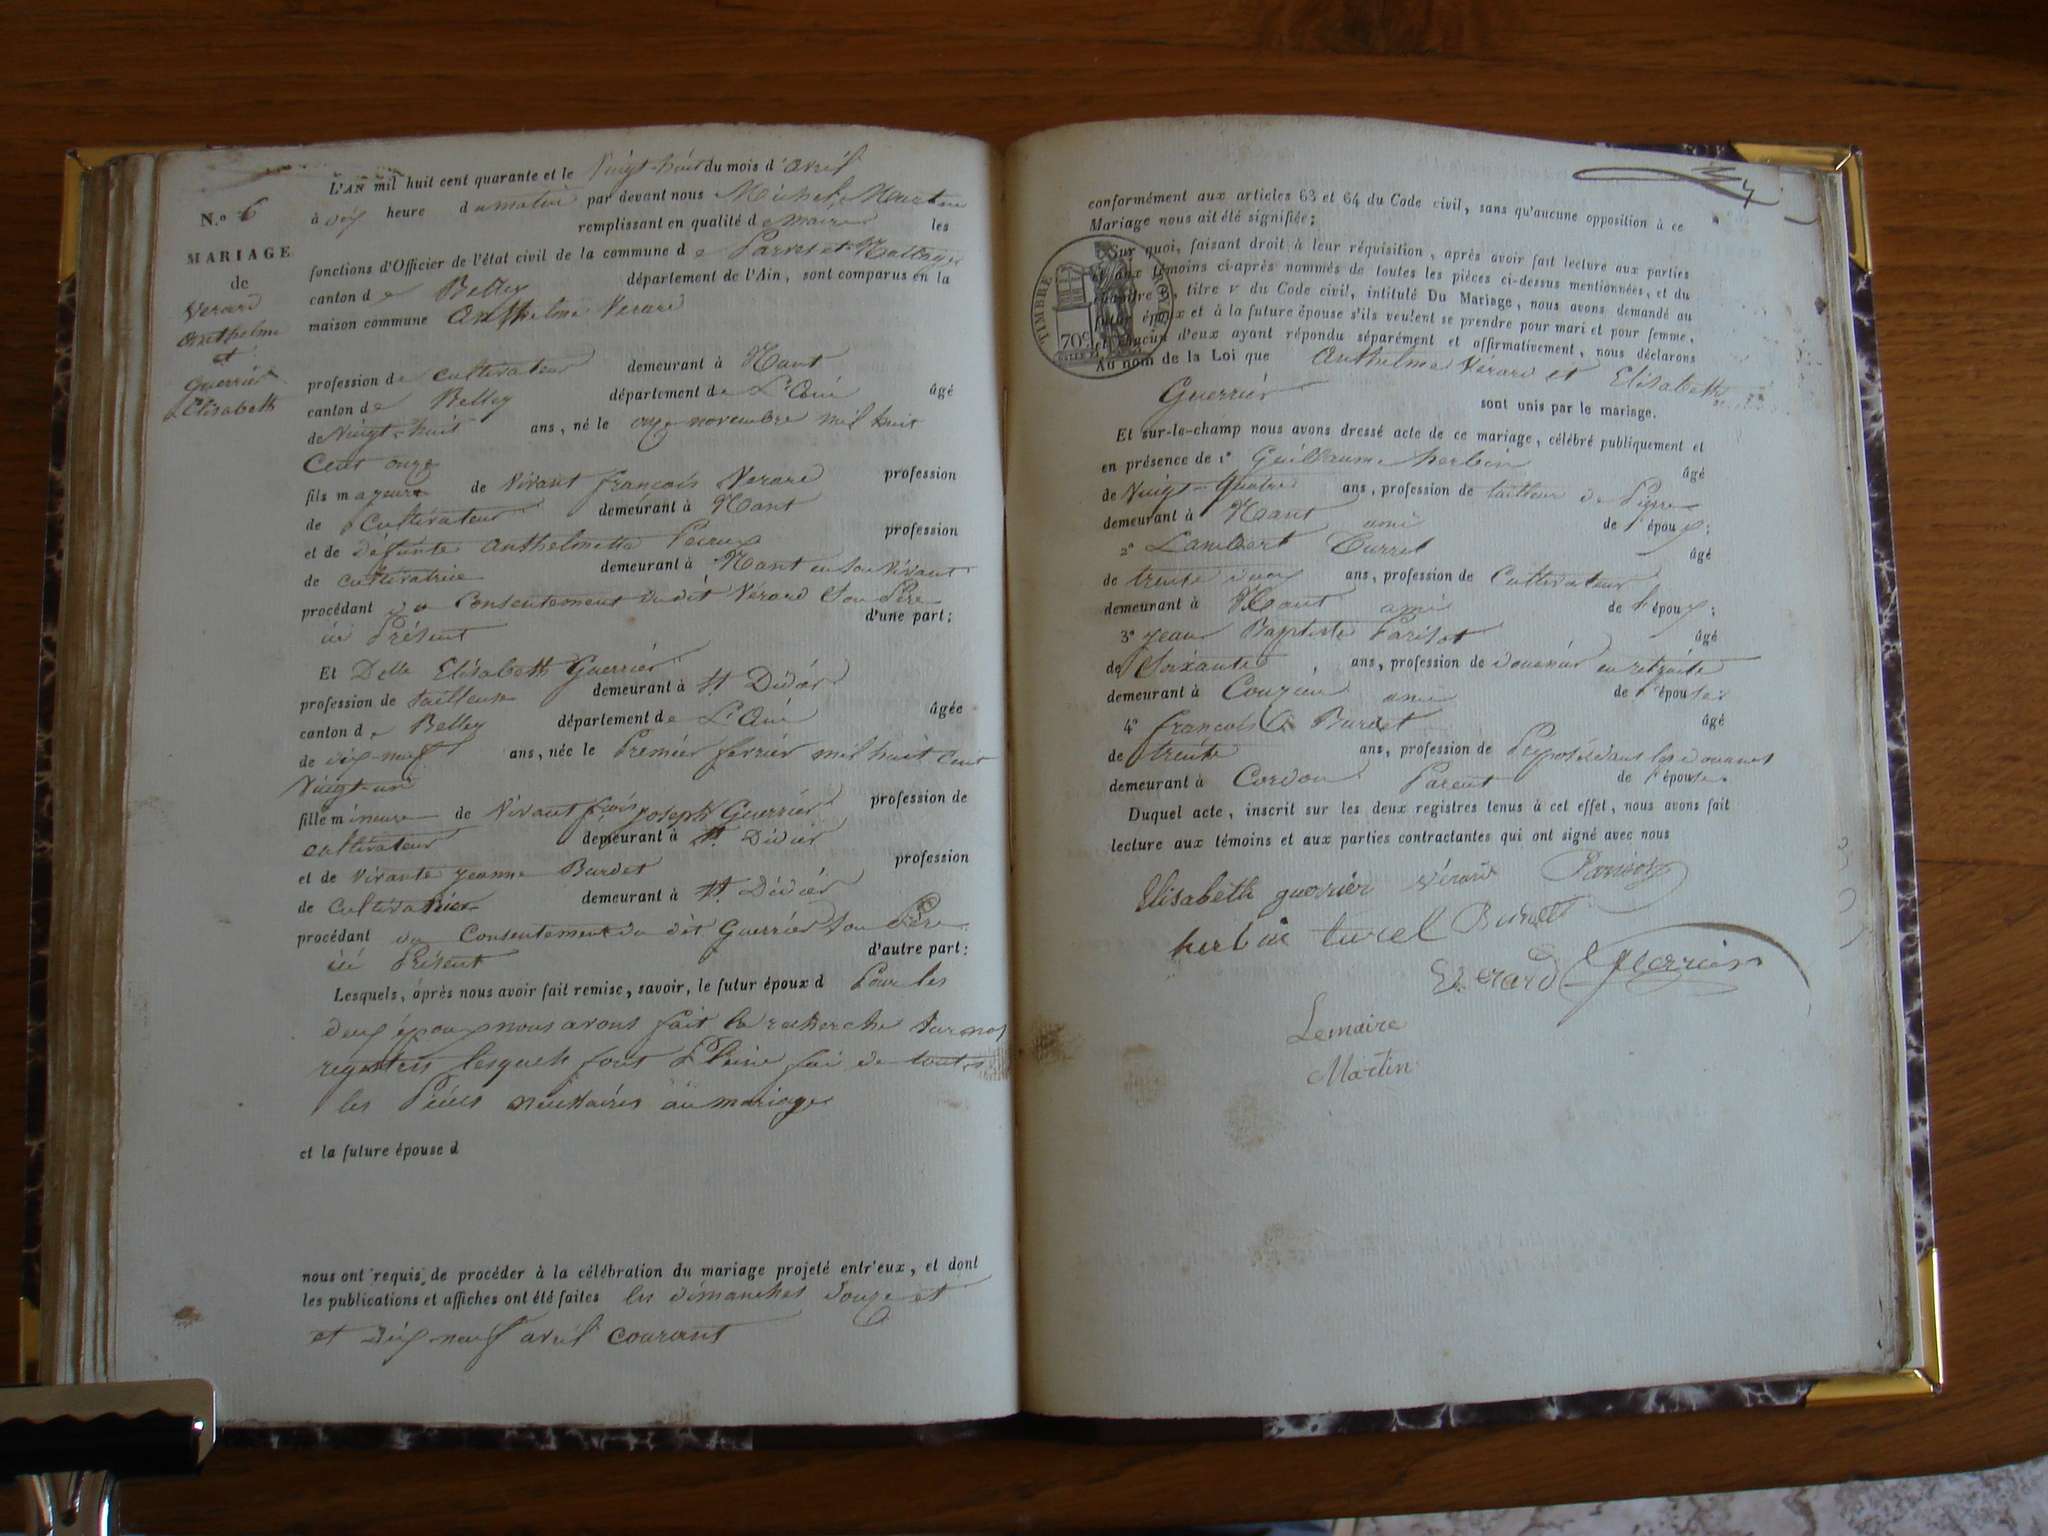 L'AN mil huit cent quarante et le Vingt-huit du mois d'avril
N.º 6
à dix heure du matin par devant nous Michel Martin
remplissant en qualité de maire les
MARIAGE
de
Verard
Anthelme
et
Guerrier
Elisabeth
fonctions d'Officier de l'état civil de la commune de Parves et Nattages
canton de Belley département de l'Ain, sont comparus en la
maison commune Anthelme Verard
profession de cultivateur demeurant à Nant
canton de Belley département de L'Ain âgé
de Vingt-huit ans, né le onze novembre mil huit
Cent onze
fils majeur de Vivant françois Verard profession
de Cultivateur demeurant à Nant
et de défunte Anthelmette profession
de cultivatrice demeurant à Nant en son vivant
procédant du Consentement du dit Vérard Son Père
ici Présent d'une part;
Et Delle Elisabeth Guerrier
profession de tailleuse demeurant à St Didier
canton de Belley département de L'Ain âgée
de dix-neuf ans, née le Premier fevrier mil huit Cent
Vingt-un
fille mineure de Vivant fçois joseph Guerrier profession de
cultivateur demeurant à St. Didier
et de vivante jeanne Burdet profession
de Cultivatrice demeurant à St. Didier
procédant du Consentement du dit Guerrier Son Père
ici Présent d'autre part:
Lesquels, après nous avoir fait remise, savoir, le futur époux d Pour les
deux époux nous avons fait la recherche sur nos
registres lesquels font Pleine foi de toutes
les Pièces nécessaires au mariage
et la future épouse d
nous ont requis de procéder à la célébration du mariage projeté entr'eux, et dont
les publications et affiches ont été faites les dimanches douze et
et dix-neuf avril courant
conformément aux articles 63 et 64 du Code civil, sans qu'aucune opposition à ce
Mariage nous ait été signifiée;
Sur quoi, faisant droit à leur réquisition, après avoir fait lecture aux parties
et aux témoins ci-après nommés de toutes les pièces ci-dessus mentionnées, et du
chapitre , titre v du Code civil, intitulé Du Mariage, nous avons demandé au
futur époux et à la future épouse s'ils veulent se prendre pour mari et pour femme,
et chacun d'eux ayant répondu séparément et affirmativement, nous déclarons
TIMBRE
70c
Au nom de la Loi que Anthelme Vérard et Elisabeth
Guerrier
sont unis par le mariage.
Et sur-le-champ nous avons dressé acte de ce mariage, célébré publiquement et
en présence de 1º Guillaume herbin âgé
de Vingt-Quatre ans, profession de tailleur de Pierre
demeurant à Nant ami de l'époux;
2º Lambert Turrel âgé
de trente deux ans, profession de Cultivateur
demeurant à Nant ami de l'époux;
3º Jean Baptiste âgé
de Soixante , ans, profession de douanier en retraite
demeurant à ami de l'épouse;
4º françois Burdet âgé
de trente ans, profession de Préposé dans les douanes
demeurant à Cordon Parent de l'épouse.
Duquel acte, inscrit sur les deux registres tenus à cet effet, nous avons fait
lecture aux témoins et aux parties contractantes qui ont signé avec nous
Elisabeth guerrier Vérard
herbin turel Burdet
Guerrier
Lemaire
Martin